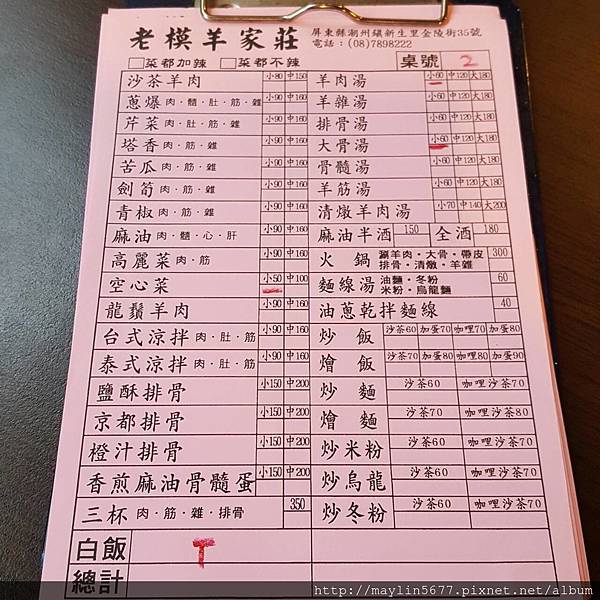 老模羊家莊 屏東縣潮州鎮新生里金陵街35號
電話：(08)7898222
□菜都加辣 □菜都不辣 桌號 2
沙茶羊肉 小80 中150 羊肉湯 小60 中120 大180
蔥爆 肉·髓·肚·筋·雜 小90 中160 羊雜湯 小60 中120 大180
芹菜 肉·肚·筋·雜 小90 中160 排骨湯 小60 中120 大180
塔香 肉·肚·筋·雜 小90 中160 大骨湯 小60 中120 大180
苦瓜 肉·筋·雜 小90 中160 骨髓湯 小60 中120 大180
劍筍 肉·筋·雜 小90 中160 羊筋湯 小60 中120 大180
青椒 肉·筋·雜 小90 中160 清燉羊肉湯 小70 中140 大200
麻油 肉·髓·心·肝 小90 中160 麻油半酒 150 全酒 180
高麗菜 肉·筋 小90 中160 火鍋 涮羊肉·大骨·帶皮 排骨·清燉·羊雜 300
空心菜 小50 中100 麵線湯 油麵·冬粉 米粉·烏龍麵 60
龍鬚羊肉 小90 中160 油蔥乾拌麵線 40
台式涼拌 肉·肚·筋 小90 中160 炒飯 沙茶60 加蛋70 咖哩70 加蛋80
泰式涼拌 肉·肚·筋 小90 中160 燴飯 沙茶70 加蛋80 咖哩80 加蛋90
鹽酥排骨 小150 中200 炒麵 沙茶60 咖哩沙茶70
京都排骨 小150 中200 燴麵 沙茶70 咖哩沙茶80
橙汁排骨 小150 中200 炒米粉 沙茶60 咖哩沙茶70
香煎麻油骨髓蛋 小150 中200 炒烏龍 沙茶60 咖哩沙茶70
三杯 肉·筋·雜·排骨 350 炒冬粉 沙茶60 咖哩沙茶70
白飯 T
總計
http://maylin5677.pixnet.net/album